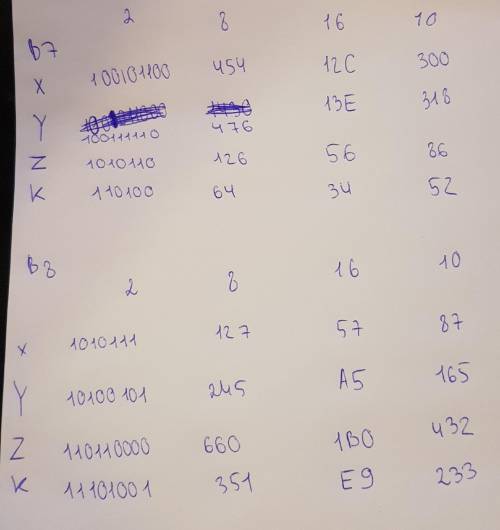 2 8 16 10
B7
X 100101100 454 12C 300
Y 100111110 476 13E 318
Z 1010110 126 56 86
K 110100 64 34 52
B8
2 8 16 10
X 1010111 127 57 87
Y 10100101 245 A5 165
Z 110110000 660 1B0 432
K 11101001 351 E9 233